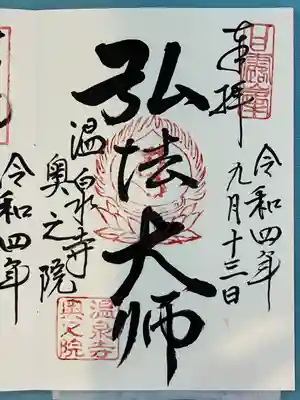 奉拝
令和四年
九月十三日
弘法大师
温泉寺
奥之院
温泉寺
奥之院
令和四年